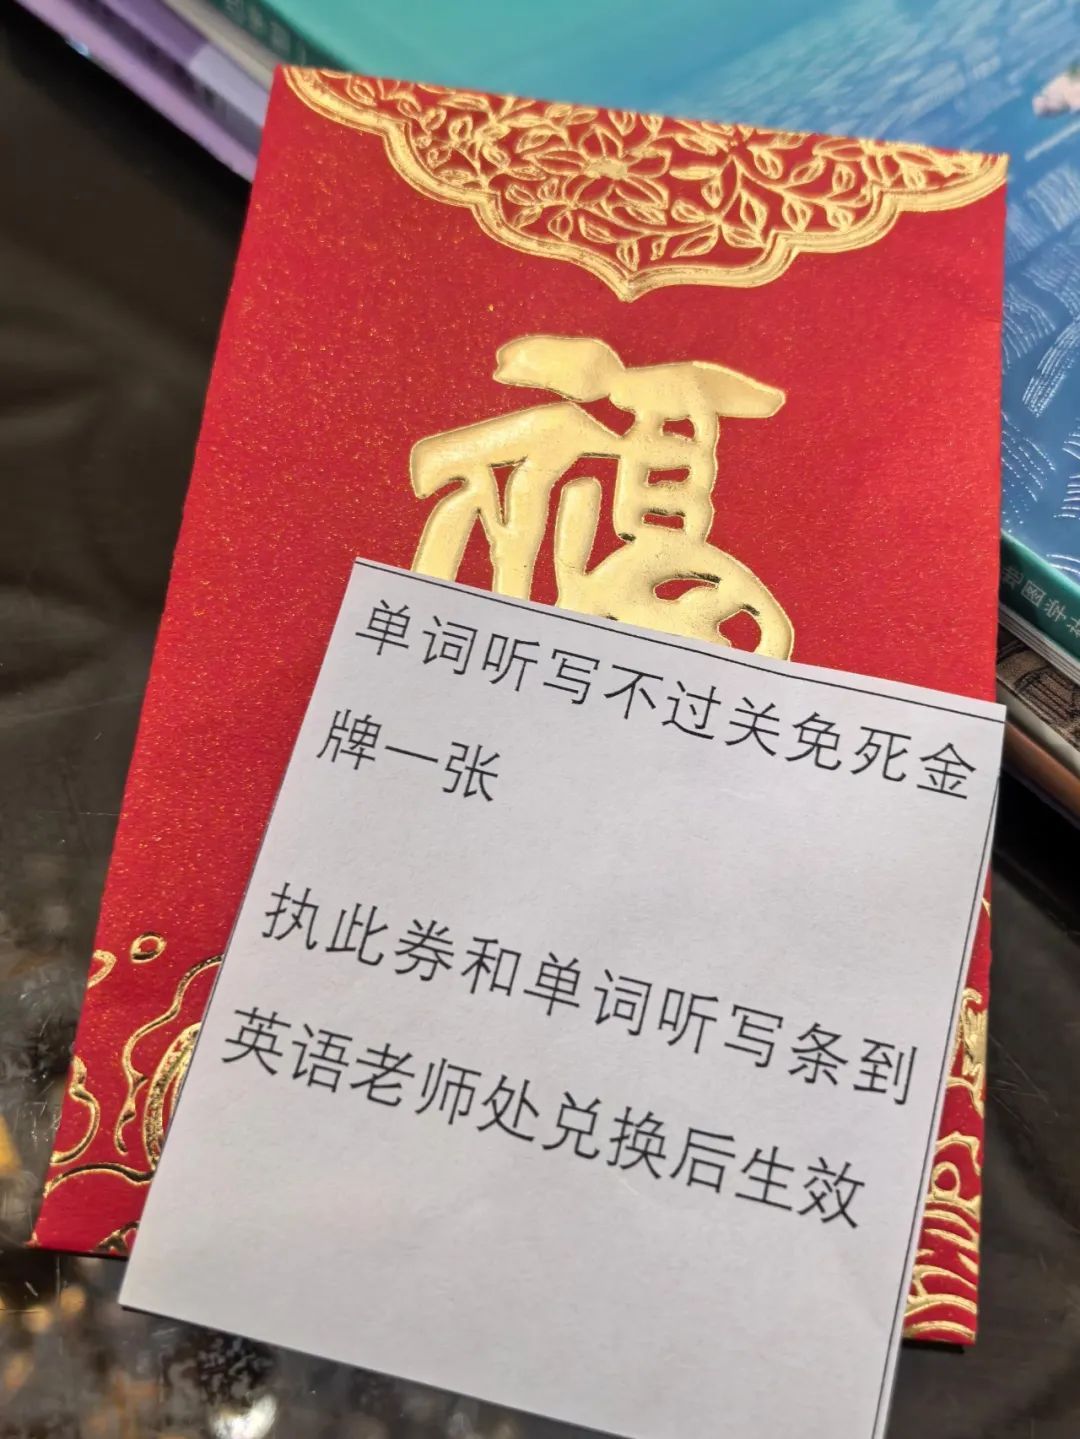 福
单词听写不过关免死金
牌一张
执此券和单词听写条到
英语老师处兑换后生效